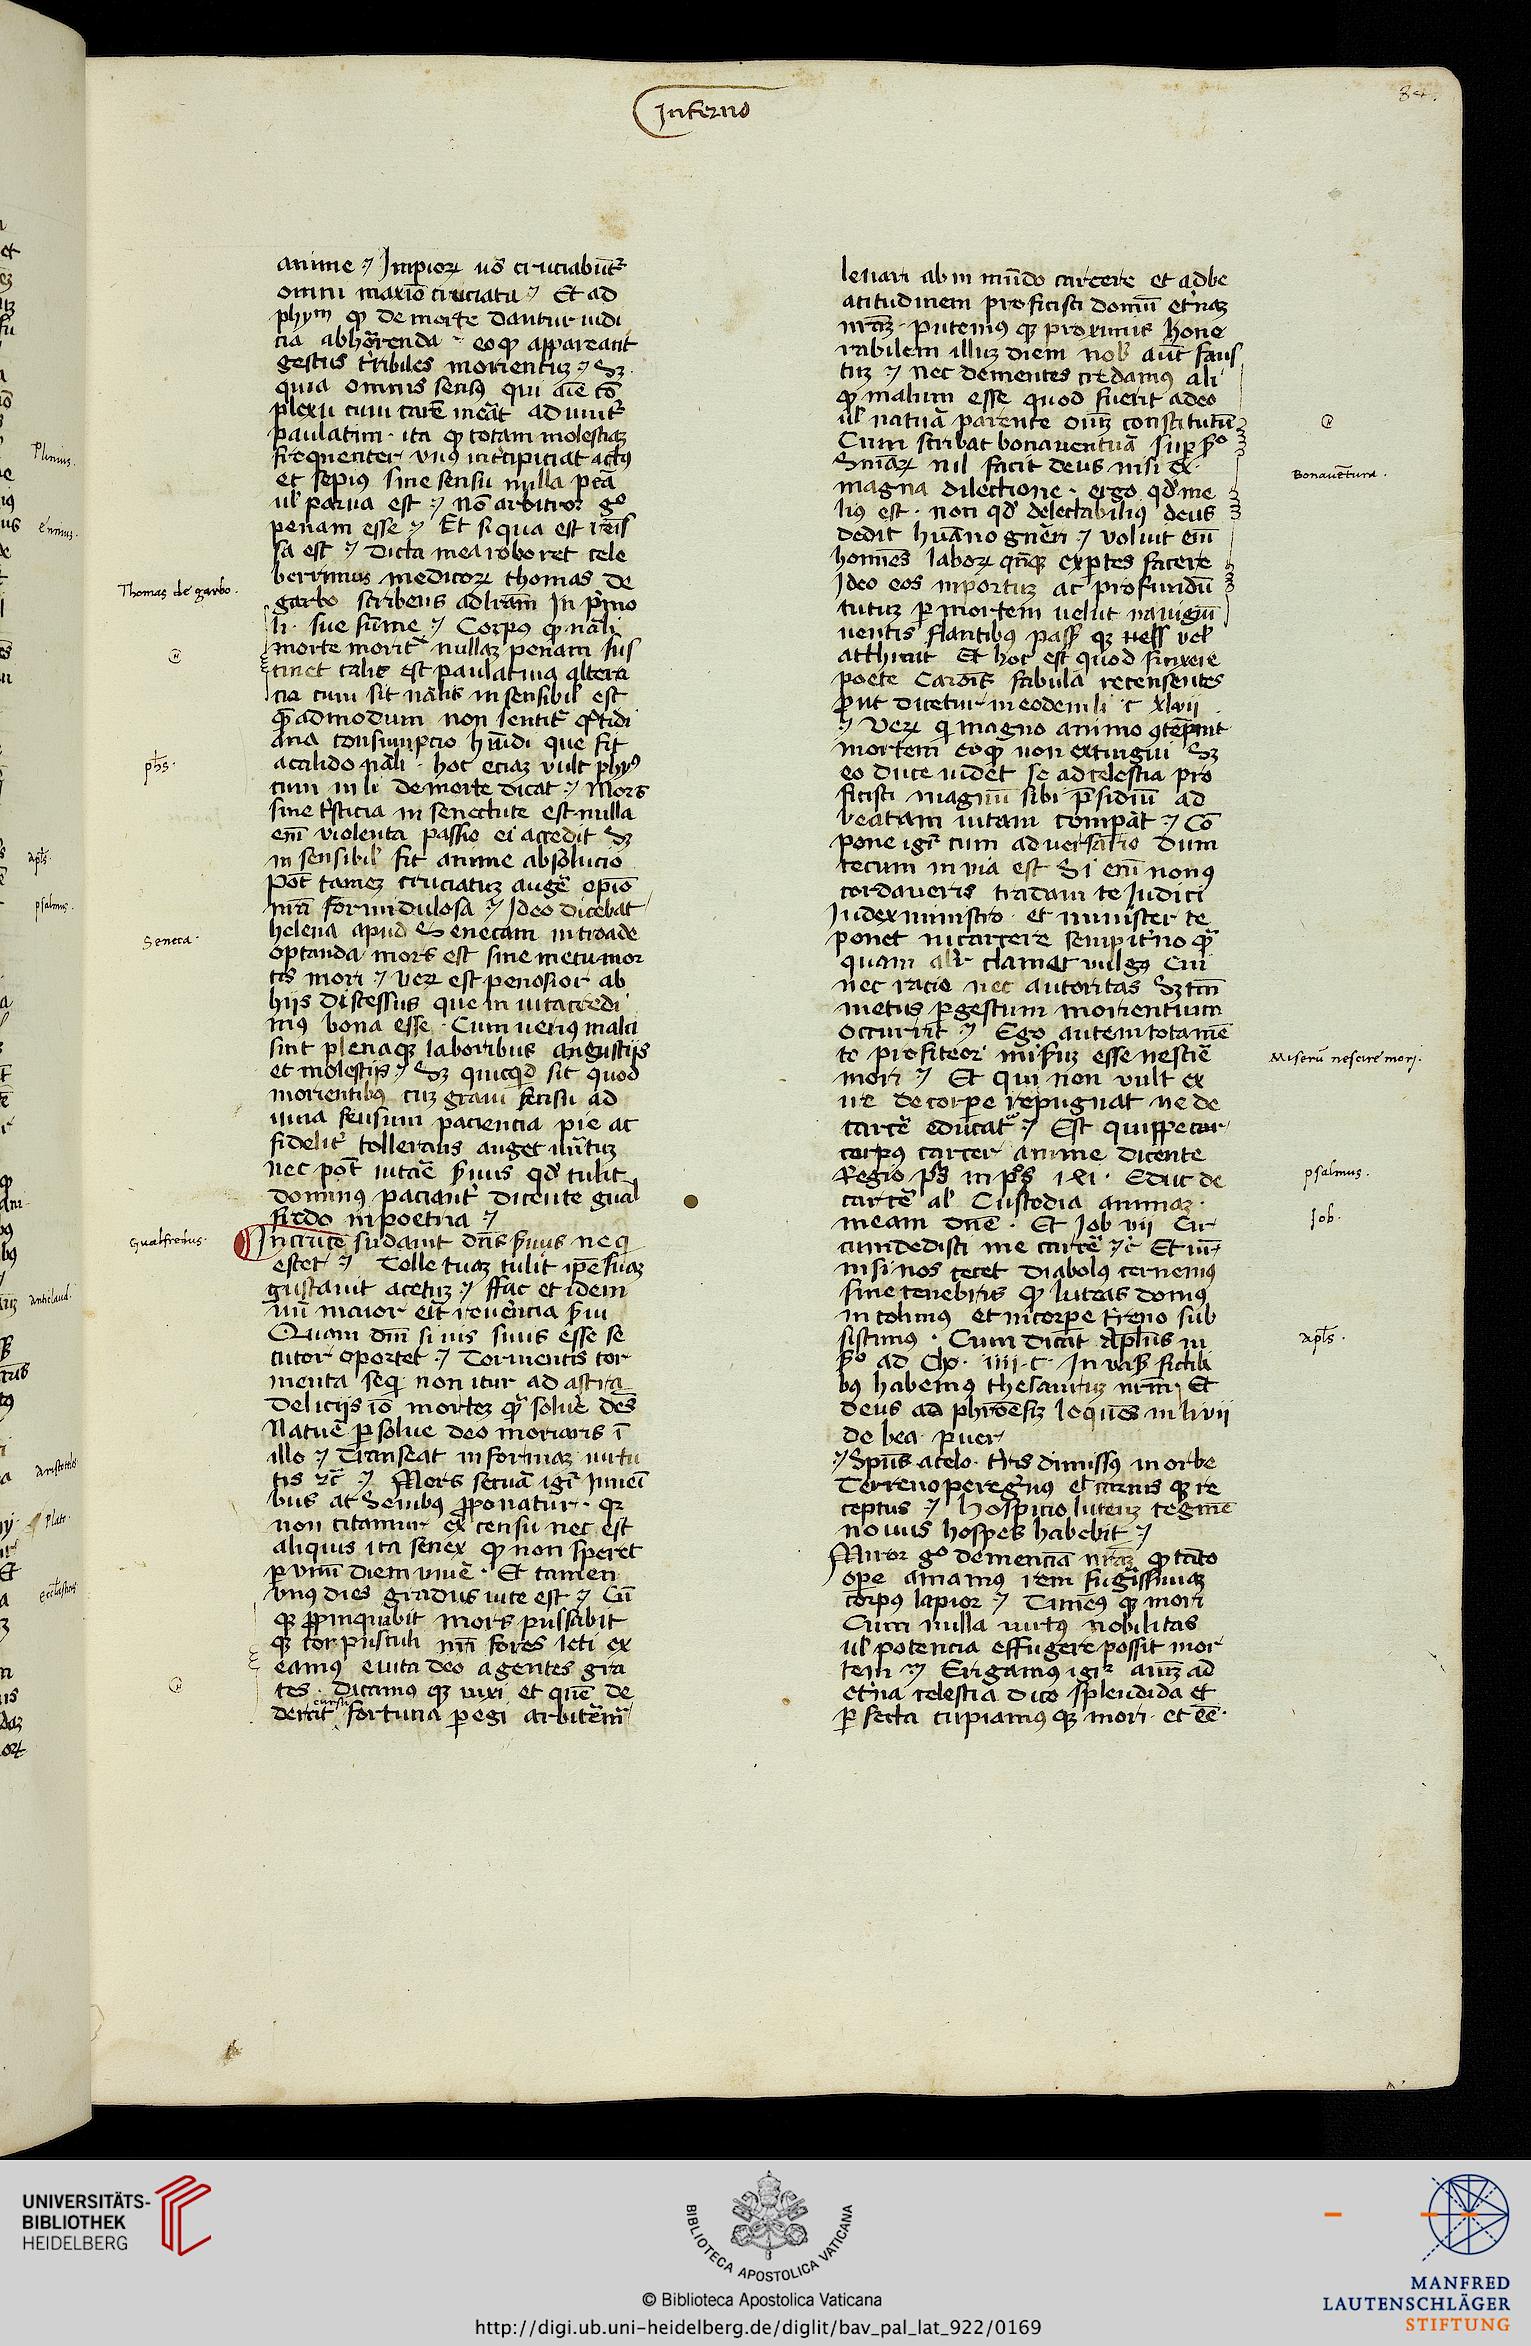 Inferno
84.
anime Impior̄ u͞o cruciabūt᷑
omni maxi͞o cruciatu Et ad
phym̄ qꝫ de morte dantur iudi
cia abhorrenda eo qꝫ appareant
gestus t᷑ribiles morientiuꝫ Sꝫ
quia omnis sensꝰ qui aīe cō
plexu cum carē meāt adimit᷑
paulatim ita qꝫ totam molestiaꝫ
frequenter unꝰ int᷑cipiat actꝰ
et sepius sine sensu nulla pēa
ul' parua est Nō arbitror g͞o
penam esse Et si qua est
sa est Dicta mea roboret cele
berrimus medicor̄ thomas de
garbo scribens ad lr͞am In p᷑mo
li sue sūme Corpꝰ qꝫ nāli
morte morit᷑ nullaꝫ penam sus
tinet talis est paulatina altera
cia cum sit nālis insensibil' est
quēadmodum non sentit᷑ q͞tidi
ana consumpcio hūidi que fit
a calido nāli hoc eciaꝫ vult phyꝰ
cum in li de morte dicat Mors
sine t᷑sticia in senectute est nulla
em̄ violenta passio ei accedit Sꝫ
insensibil' fit anime absolucio
Pōt tameꝫ cruciatuꝫ auge᷑ opīo
nr͞a formidulosa Ideo dicebat
helena apud Senecam in troade
optanda mors est sine metu mor
tis mori Ver̄ est penosior ab
hijs discessus que in uita credi
mꝰ bona esse Cum uerius mala
sint plenaqꝫ laboribus angustijs
et molestijs Sꝫ quicqͥd sit quod
morientibꝰ cuꝫ graui sensu ad
iuua sensum paciencia pie ac
fidelit᷑ tollerans auget m͞rituꝫ
nec pōt iuta᷑e s᷑uus qd' tulit
dominꝰ pacient᷑ dicente gual
frido in poetria
In cruce sudauit dn͞s s᷑uus ne qͥ
escet Tolle tuaꝫ tulit ip͞e suaꝫ
gustauit acetuꝫ Fac et idem
nū maior eͥt reu᷑encia s᷑ui
Quam dn͞i si uis suus esse se
cutor oportet Tormentis tor
menta seqͥ non itur ad astra
deliciis iō morteꝫ qͣ solue᷑ des
Nature p̱solue deo moriaris ī
illo Transeat in formaꝫ uirtu
tis ⁊c̄ Mors secūa igͥ Inueī
bus ac Senibꝰ ꝓponatur qꝫ
non citamur ex censu nec est
aliquis ita senex qꝫ non speret
p̱ unū diem viue᷑ Et tamen
unꝰ dies gradus uite est Cū
qꝫ ꝓpinquabit mors pulsabit
qꝫ corpusculi nr͞i fores leti ex
eamꝰ euita deo agentes gra
tes Dicamꝰ qꝫ uixi et quē de
derat cursū fortuna p̱egi arbit᷑em᷑
leuari ab in mūdo carcere et ad be
atitudinem proficisci domū et᷑naꝫ
nr͞aꝫ putemꝰ qꝫ proximis hono
rabilem illuꝫ diem nob' aūt faus
tuꝫ nec dementes credamꝰ ali
qͣ malum esse quod fuerit a deo
ul' natūa parente oīuꝫ constitutū
Cum scribat bonauentūa sup̱ s͞o
Snīar̄ nil facit deus nisi ex
magna dilectione ergo qd' me
lius est non qd' delectabiliꝰ deus
dedit hūano gn᷑eri Voluit em̄
homīes labor̄ qn͞qꝫ expertes facere
Ideo eos in portuꝫ ac profundū
tutuꝫ p̱ mortem uelut nauigiū
uentis flantibꝰ pass' qꝫ uess vel'
atthiuit Et hoc est quod finxere
poete Caronis fabula recensentes
prut dicetur in eodem li c̄ xlvii
Ver̄ qͥ magno animo ꝯtēpnit
mortem eo qꝫ non extingui Sꝫ
eo duce uidet se ad celestia pro
ficisci magnū sibi p͞sidiū ad
beatam uitam compāt Cō
pone igͥ cum aduersario dum
tecum in uia est Si em̄ non ꝯ
cordaueris tradam te Iudici
Iudex ministro et minister te
ponet in carcere sempit᷑no qͣ
quam al'r clamet vulgꝰ Cui
nec racio nec autoritas Sꝫ tm̄
metus p̱ gestum morientium
occurrit Ego autem tota mē
te profiteor mis᷑uꝫ esse nesci᷑e
mori Et qui non vult ex
ire de corpe᷑ repugnat ne de
carce᷑ educat᷑ Est quippe cor
corpꝰ carcer anime dicente
Regio ps͞ in ps͞ 1xli Educ de
carce᷑ al' Custodia animaꝫ
meam dn͞e Et Job vii Cir
cumdedisti me carce᷑ ⁊c̄ Et in
nisi nos cecet diabolꝰ cernemꝰ
sine tenebris qꝫ luteas domꝰ
incolimꝰ et in corpe᷑ t᷑reno sub
sistimꝰ Cum dicat Apl͞us in
s͞o ad Chor͞ iiii c̄ In uas' fictili
bꝰ habemꝰ thesauruꝫ nr͞m Et
deus ad phronesiꝫ loquēs in li vii
de bea puer
Spūs a celo t᷑ris dimissꝰ in orbe
Terreno peregrinꝰ et carnis qꝫ re
ceptus Hospicio luteuꝫ tegmē
nouus hospes habebit
Miror g͞o demenciā nr͞aꝫ qꝫ tāto
ope᷑ amamꝰ rem fugissimaꝫ
corpus lapior Timemꝰ qꝫ mori
Cum nulla uirtꝰ nobilitas
ul' potencia effugere possit mor
tem Erigamꝰ igͥ aīuꝫ ad
et᷑na celestia dico splendida et
p̱fecta cupiamꝰ qꝫ mori et eē
Plinius.
ennius.
Thomas de garbo.
ph͞s.
apl͞s.
psalmus.
Seneca.
Gualfredus.
anticlaud.
Aristotiles
Plato.
ecclesiastes
Bonauētura.
Miserū nescire mori.
psalmus.
Job.
apl͞s.
UNIVERSITÄTS-
BIBLIOTHEK
HEIDELBERG
BIBLIOTECA APOSTOLICA VATICANA
© Biblioteca Apostolica Vaticana
http://digi.ub.uni-heidelberg.de/diglit/bav_pal_lat_922/0169
MANFRED
LAUTENSCHLÄGER
STIFTUNG